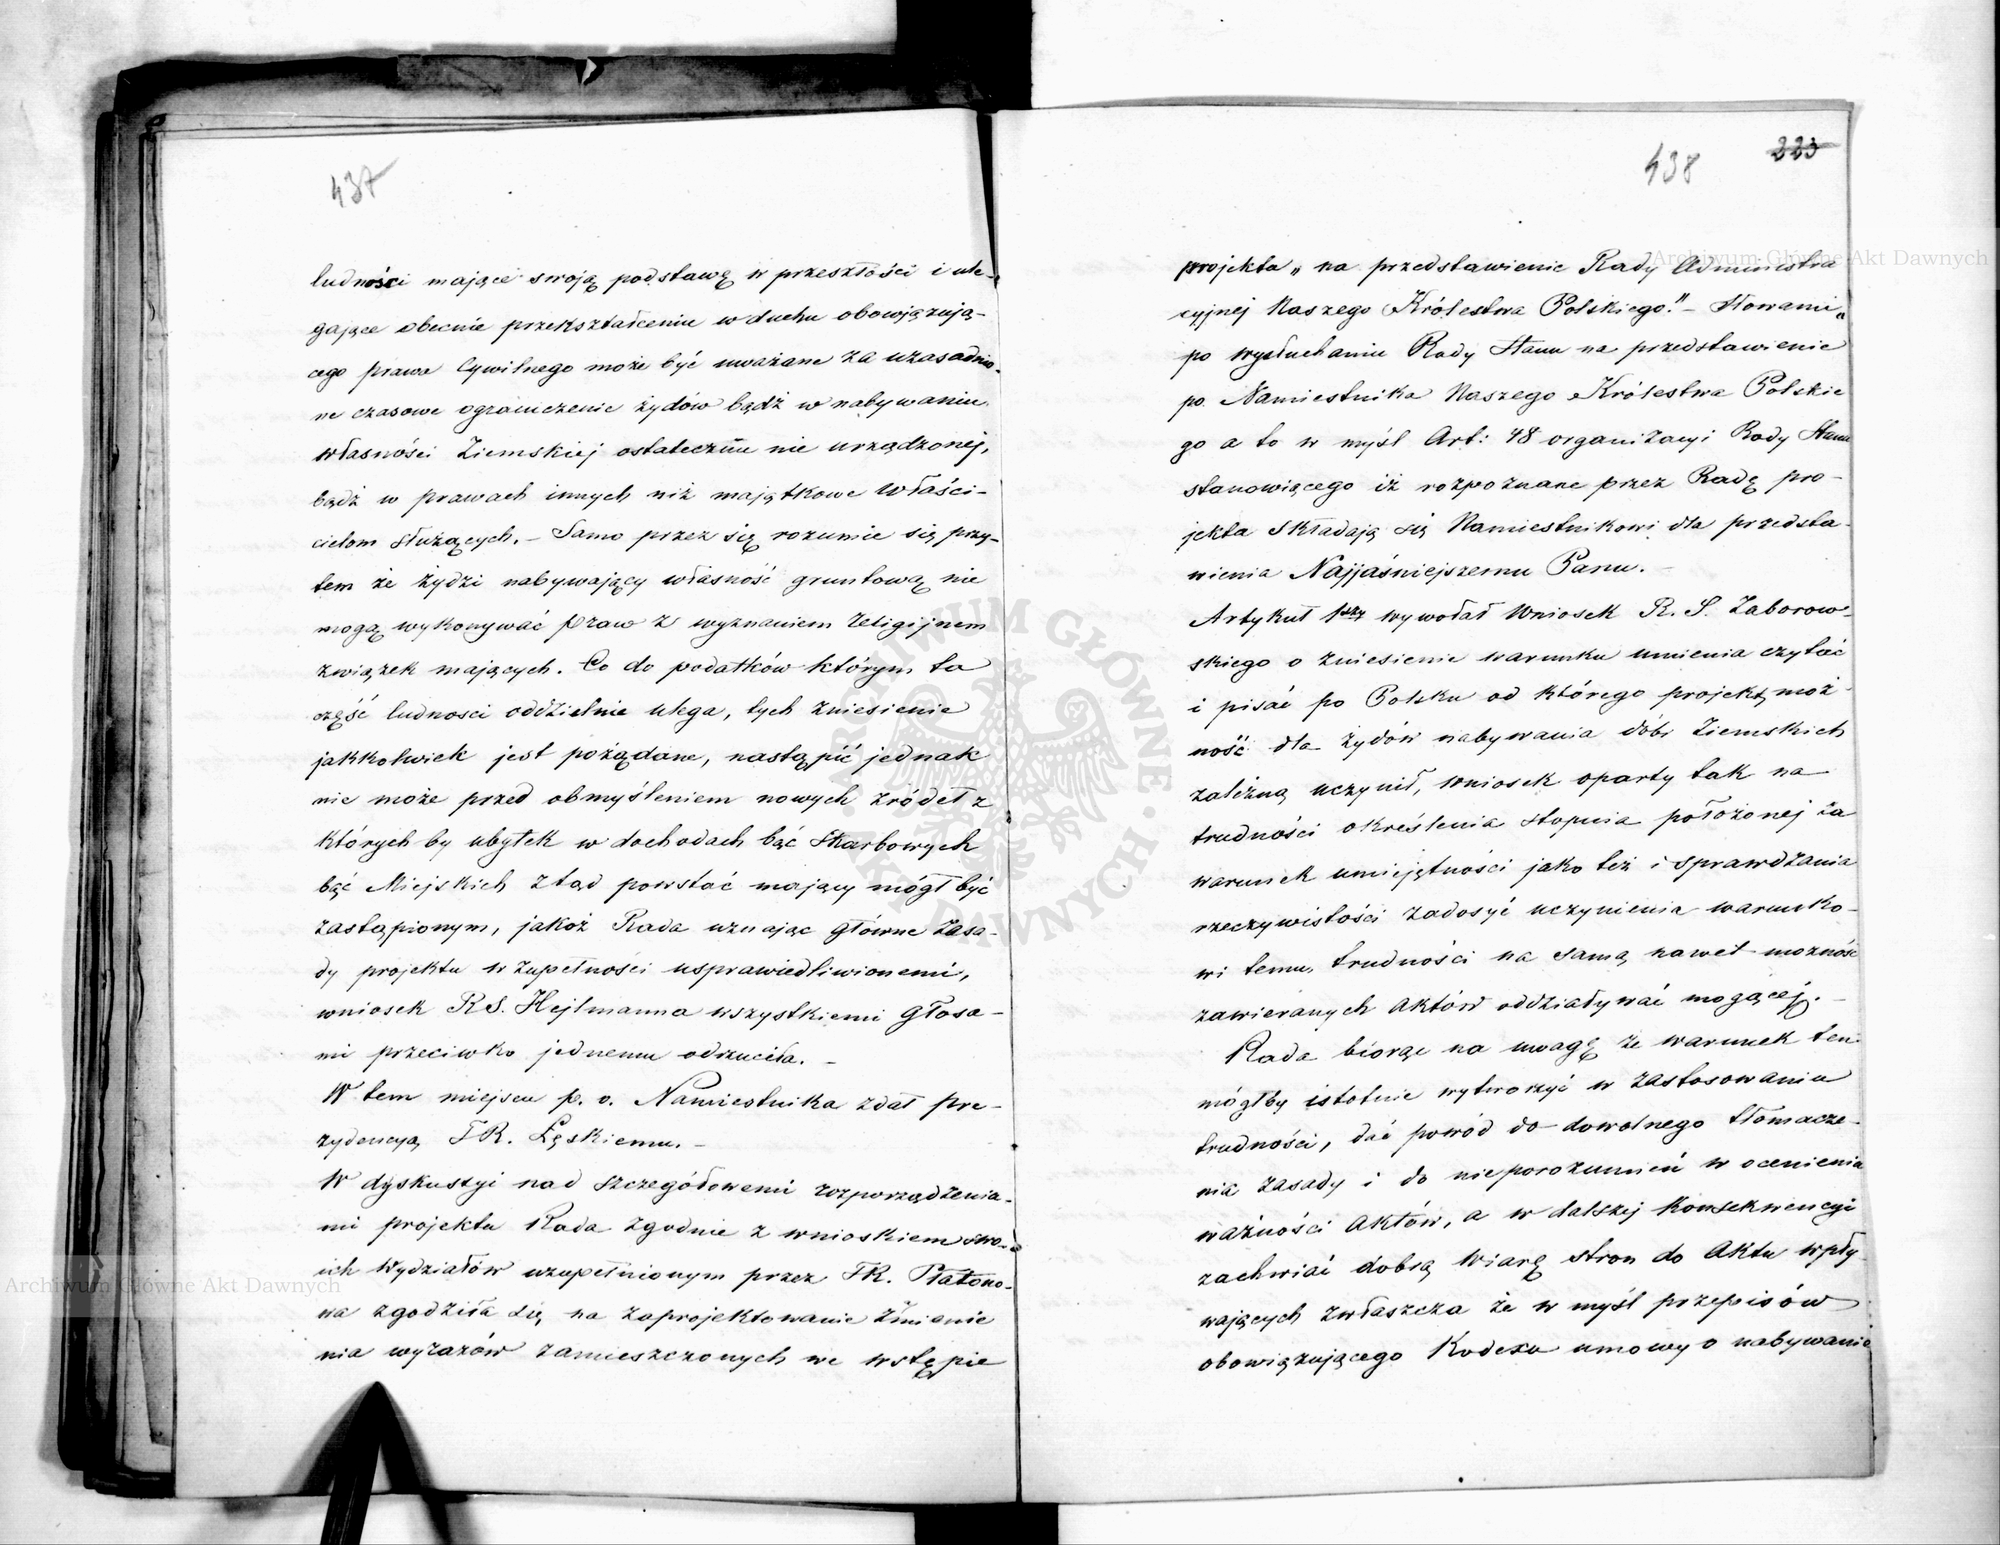 437
ludności mające swoją podstawę w przeszłości i ule-
gające obecnie przekształceniu w duchu obowiązują-
cego prawa Cywilnego może być uważane za uzasadnio-
ne czasowe ograniczenie żydów bądź w nabywaniu
własności Ziemskiej ostatecznie nie urządzonej,
bądź w prawach innych niż majątkowe właści-
cielom służących. – Samo przez się rozumie się przy-
tem że żydzi nabywający własność gruntową nie
mogą wykonywać praw z wyznaniem religijnem
związek mających. Co do podatków którym ta
część ludnosci oddzielnie ulega, tych zniesienie
jakkolwiek jest pożądane, nastąpić jednak
nie może przed obmyśleniem nowych źródeł z
których by ubytek w dochodach bąć Skarbowych
bąć Miejskich ztąd powstać mający mógł być
zastąpionym, jakoż Rada uznając główne zasa-
dy projektu w zupełności usprawiedliwionemi,
wniosek R. S. Hejlmanna wszystkiemi głosa-
mi przeciwko jednemu odrzuciła. –
W tem miejscu p. o. Namiestnika zdał pre-
zydencyą TR. Łęskiemu. –
W dyskustyi nad szczegółowemi rozporządzenia-
mi projektu Rada zgodnie z wnioskiem swo-
ich Wydziałów uzupełnionym przez TR. Płatono-
wa zgodziła się na zaprojektowanie zmienie
nia wyrazów zamieszczonych we wstępie
438 223
projektu „na przedstawienie Rady Administra
cyjnej Naszego Królestwa Polskiego." – Słowami „
po wysłuchaniu Rady Stanu na przedstawienie
po. Namiestnika Naszego Królestwa Polskie
go a to w myśl Art: 48 organizacyi Rady Stanu
stanowiącego iż rozpoznane przez Radę pro-
jekta składają się Namiestnikowi dla przedsta-
wienia Najjaśniejszemu Panu. –
Artykuł 1szy wywołał Wniosek R. S. Zaborow-
skiego o zniesienie warunku umienia czytać
i pisać po Polsku od którego projekt moż-
ność dla żydów nabywania dóbr Ziemskich
zależną uczynił, wniosek oparty tak na
trudności określenia stopnia położonej za
warunek umiejętności jako też i sprawdzania
rzeczywistości zadosyć uczynienia warunko-
wi temu, trudności na samą nawet możność
zawieranych Aktów oddziaływać mogącej. –
Rada biorąc na uwagę że warunek ten
mógłby istotnie wytworzyć w zastosowaniu
trudności, dać powód do dowolnego tłomacze-
nia zasady i do nieporozumień w ocenieniu
ważności Aktów, a w dalszej Konsekwencyi
zachwiać dobrą wiarę stron do Aktu wpły-
wających zwłaszcza że w myśl przepisów
obowiązującego Kodexu umowy o nabywanie
Archiwum Główne Akt Dawnych
Archiwum Główne Akt Dawnych
ARCHIWUM GŁÓWNE AKT DAWNYCH